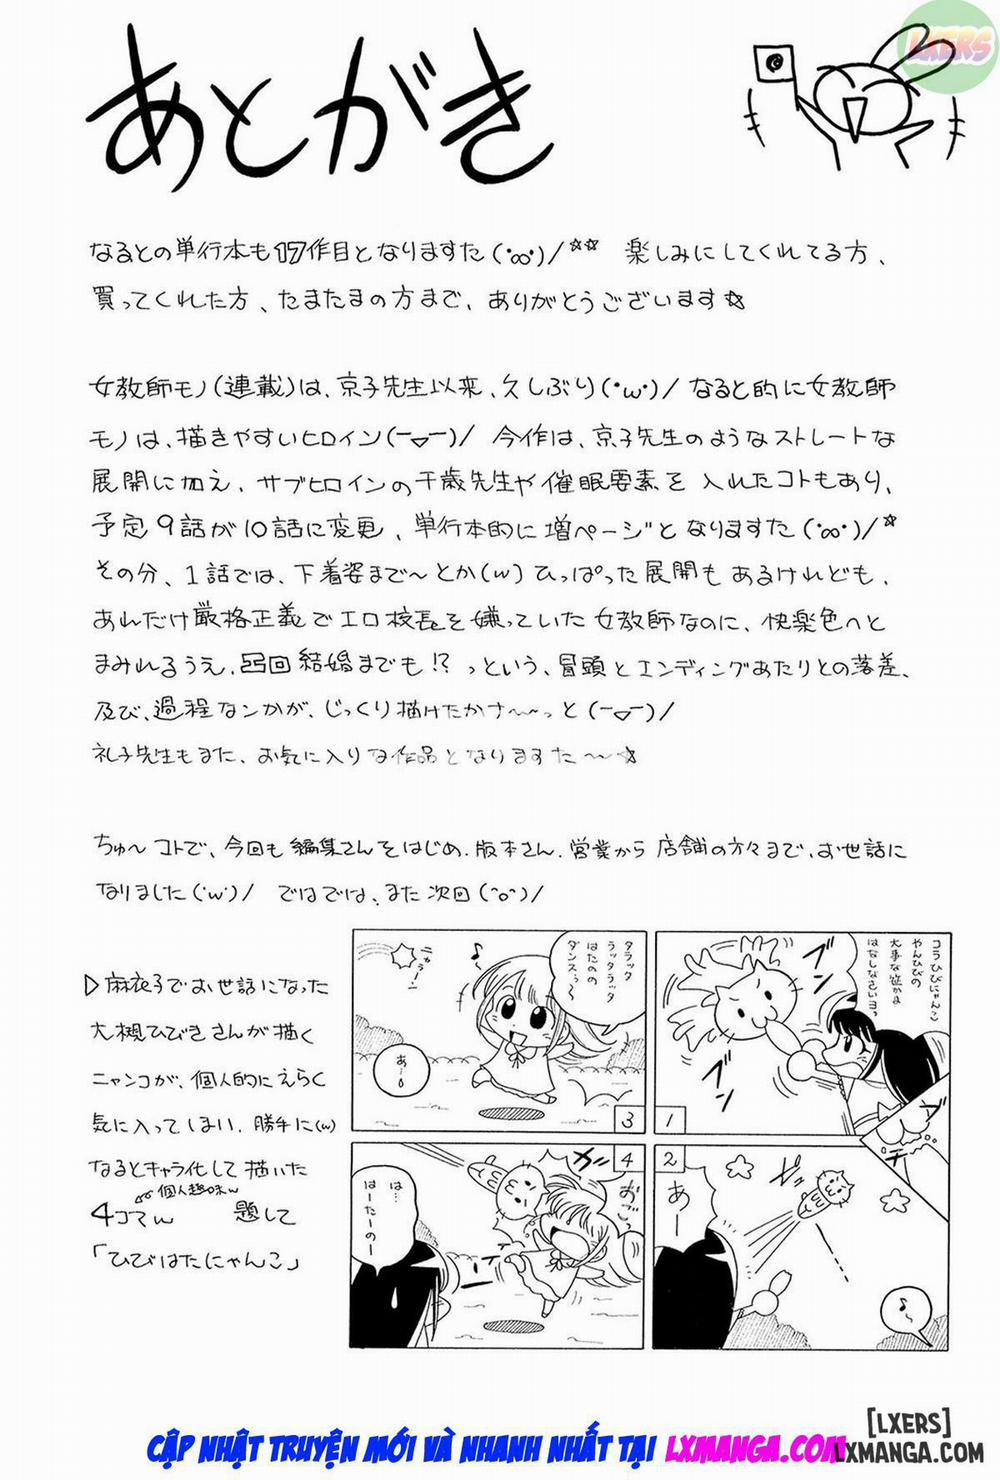 LXERS
あとがき
なるとの単行本も17作目となりますた(・∞・)/☆☆ 楽しみにしてくれてる方、
買ってくれた方、たまたまの方まで、ありがとうございます☆
女教師モノ(連載)は、京子先生以来、久しぶり(・ω・)/ なると的に女教師
モノは、描きやすいヒロイン(ー▽ー)/ 今作は、京子先生のようなストレートな
展開に加え、サブヒロインの千歳先生や催眠要素を入れたコトもあり、
予定9話が10話に変更、単行本的に増ページとなりますた(・∞・)/*
その分、1話では、下着姿まで〜とか(w)ひっぱった展開もあるけれども、
あれだけ厳格正義でエロ校長を嫌っていた女教師なのに、快楽色へと
まみれるうえ、今回結婚までも!? っという、冒頭とエンディングあたりとの落差、
及び、過程なンかが、じっくり描けたかナ〜〜っと(ー▽ー)/
礼子先生もまた、お気に入りな作品となりますた〜☆
ちゅ〜コトで、今回も編集さんをはじめ、版本さん、営業から店舗の方々まで、お世話に
なりました(・ω・)/ ではでは、また次回(^o^)/
▷麻衣子でお世話になった
大槻ひびきさんが描く
ニャンコが、個人的にえらく
気に入ってしまい、勝手に(w)
なるとキャラ化して描いた
個人趣味w
4コマw 題して
「ひびはたにゃんこ」
コラひびにゃんこ
やんひびの
大事な
はなしなさいヨっ
ブン
ブン
1
2
あー
♪
ニャラーン
♪
タラッタ
ラッタラッタ
はたのの
ダンスぅ〜
あ〜
3
4
ガン
おごっ
は…
はーたーのー
[LXERS]
CẬP NHẬT TRUYỆN MỚI VÀ NHANH NHẤT TẠI LXMANGA.COM
LXMANGA.COM